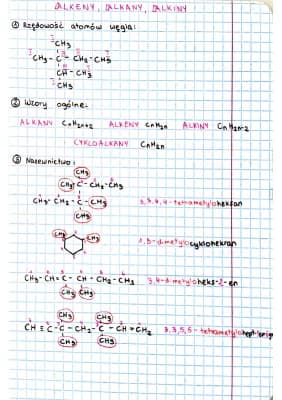 ALKENY, ALKANY, ALKINY
① Rzędowość atomów węgla:
I CH3
I CH3 - C - CH2 - CH3
CH - CH3
CH3
② Wzory ogólne:
ALKANY CnH2n+2 ALKENY CnH2n ALKINY CnH2n-2
CYKLOALKANY CnH2n
③ Nazewnictwo:
CH3
CH3 - C - CH2 - CH3
CH3 - CH2 - C - CH3 3,3,4,4-tetrametyloheksan
CH3
CH3 CH3 1,3-dimetylocykloheksan
CH3 - CH = C - CH - CH2 - CH3 3,4-dimetyloheks-2-en
CH3 CH3
CH3 CH3
CH ≡ C - C - CH2 - C - CH = CH2 3,3,5,5-tetrametylohept
CH3 CH3